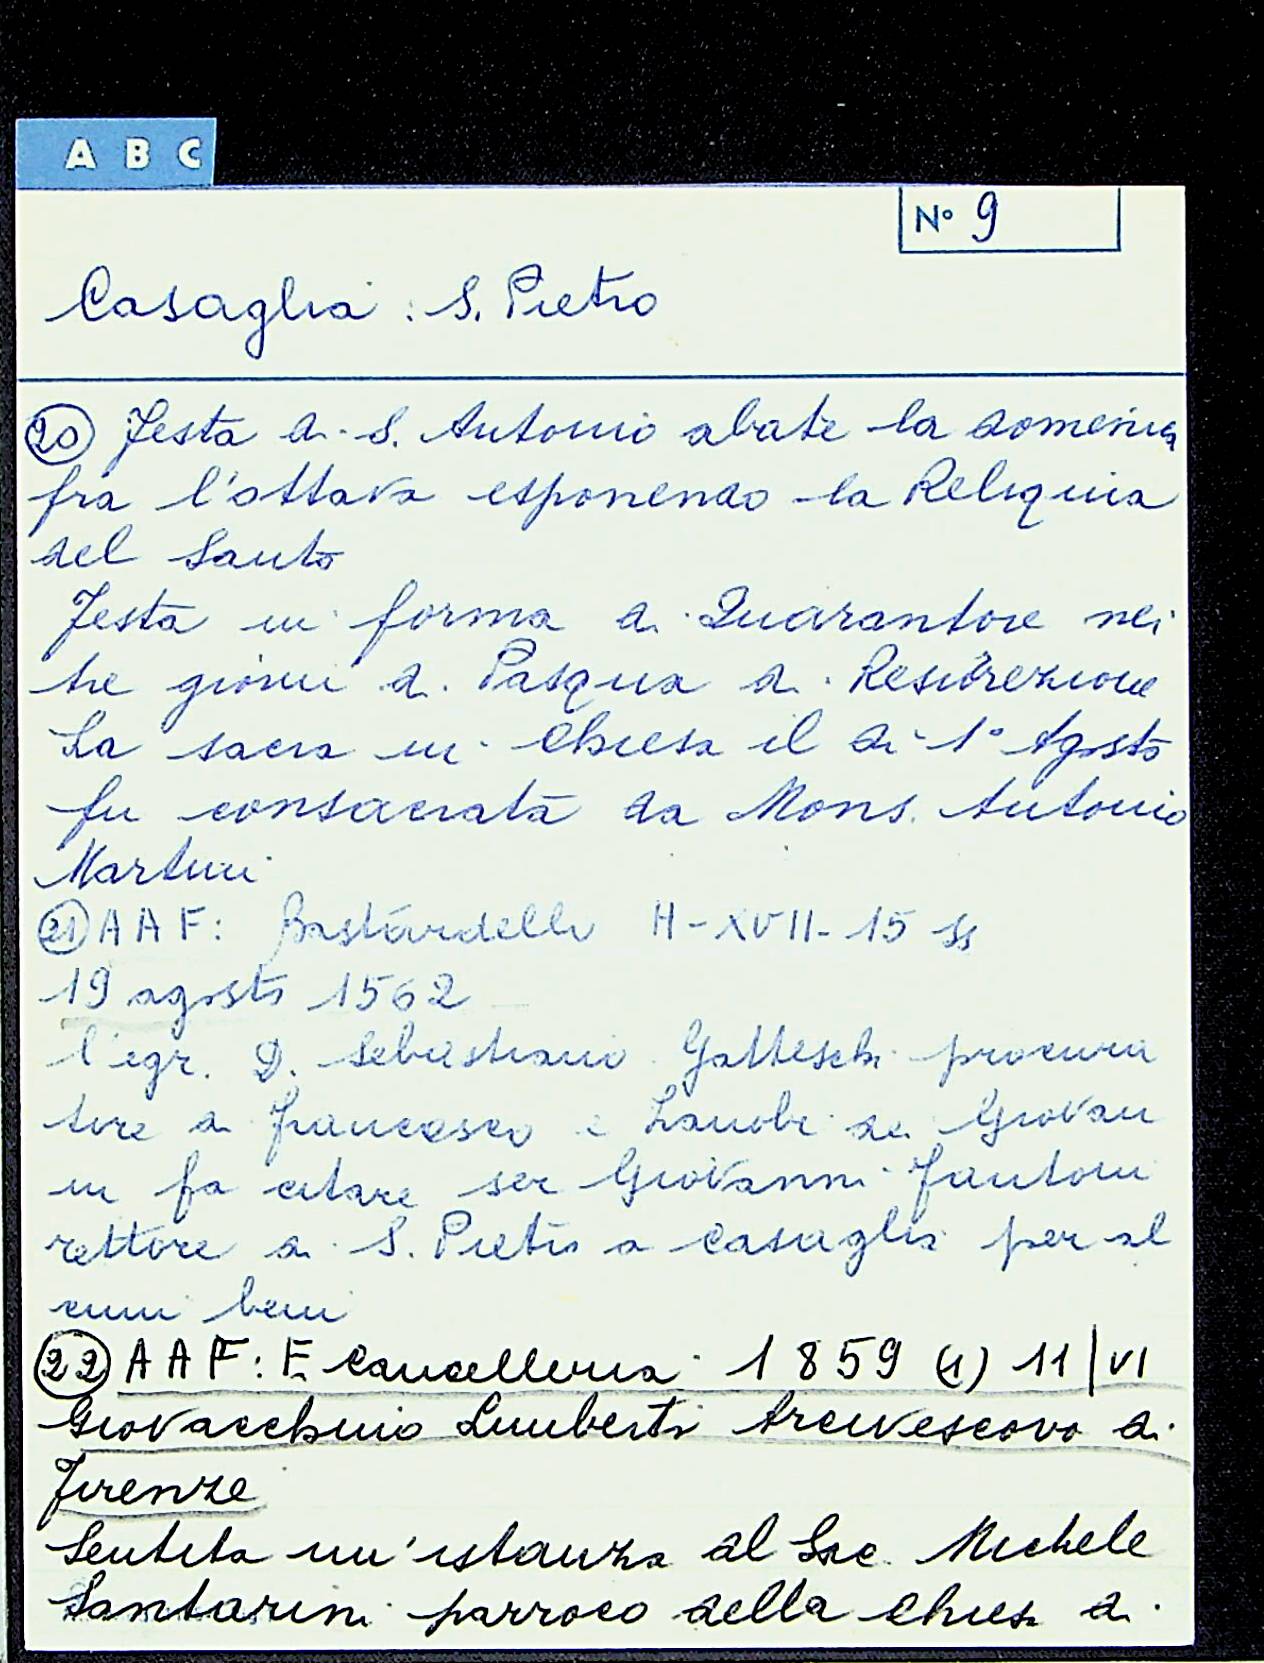 A B C
N° 9
Casaglia : S. Pietro
20 Festa di S. Antonio abate la domenica
fra l'ottava esponendo la Reliquia
del Santo
Festa in forma di Quarantore nei
tre giorni di Pasqua di Resurrezione
La sacra in Chiesa il dì 1° Agosto
fu consacrata da Mons. Antonio
Martini
21 AAF: Bastardello H-XVII-15 ss
19 agosto 1562
l'egr. D. Sebastiano Gatteschi procura
tore di Francesco e Zanobi de Giovan
ni fa citare ser Giovanni Fantoni
rettore di S. Pietro a Casaglia per al
cuni beni
22 AAF: E Cancelleria 1859 (1) 11/VI
Giovacchino Limberti Arcivescovo di
Firenze
Sentita un'istanza al Sac. Michele
Santarini parroco della chiesa di